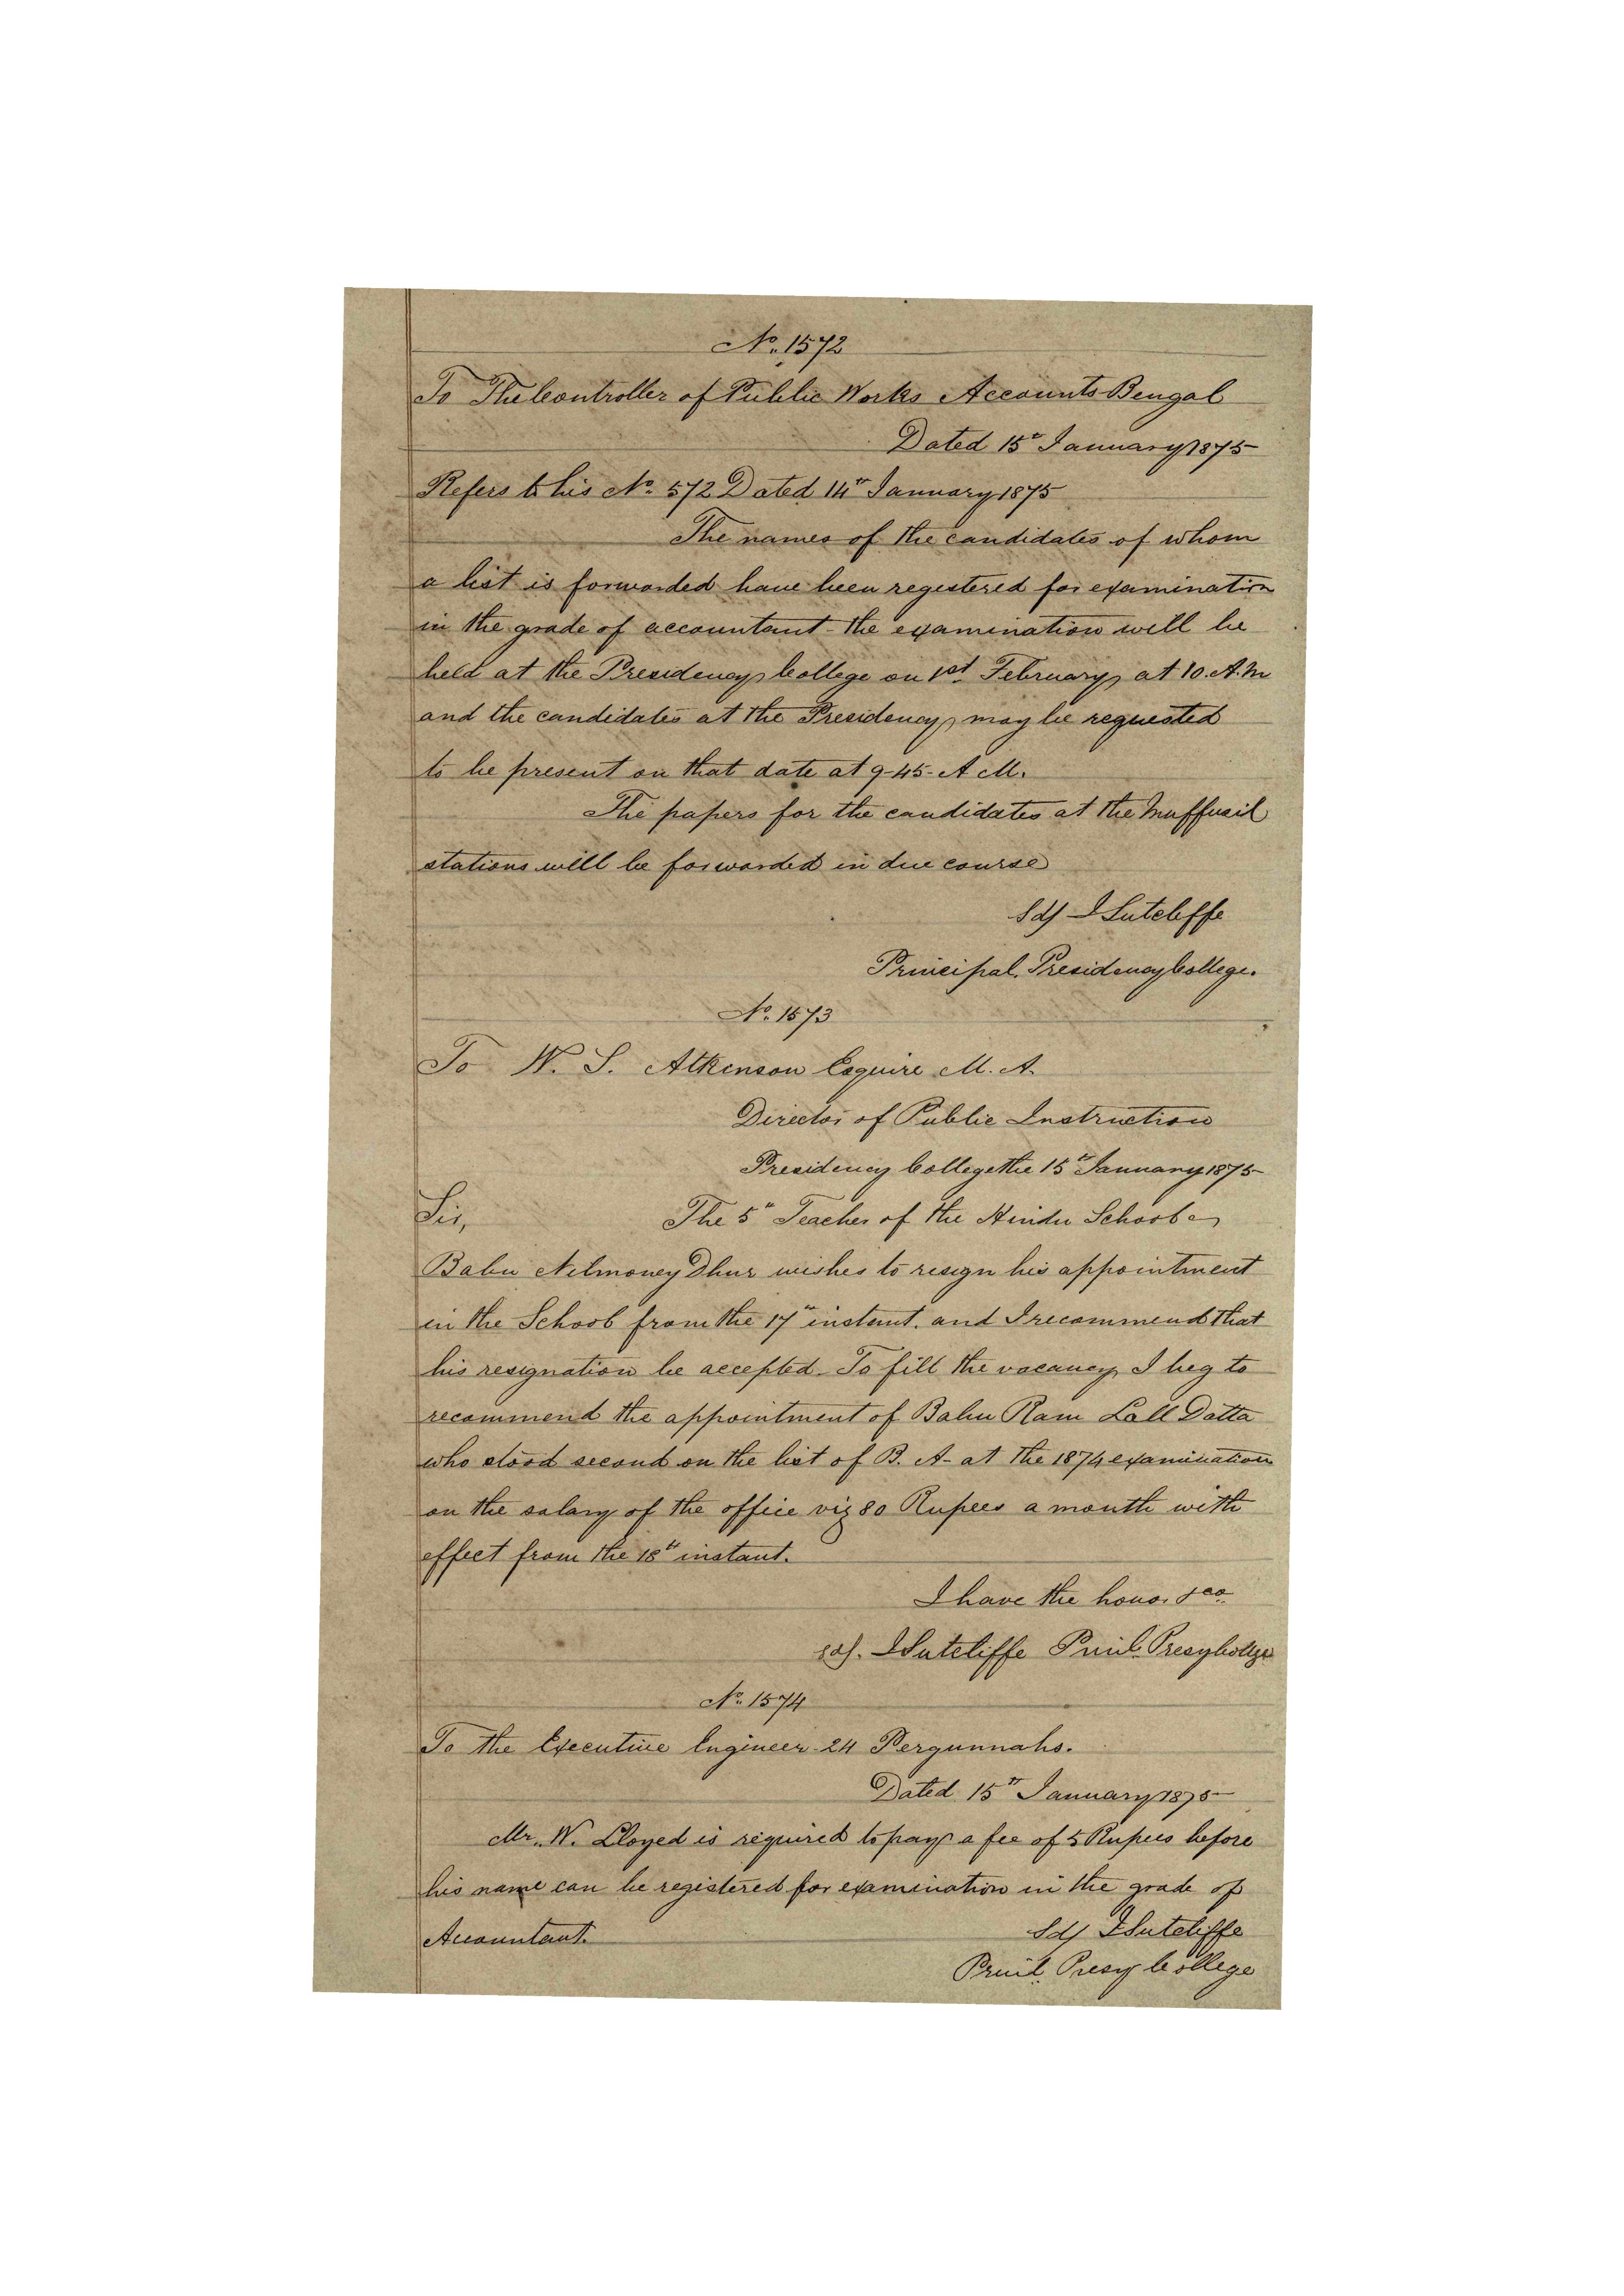 No. 1572
To The Controller of Public Works Accounts Bengal
Dated 15th January 1875
Refers to his No. 572 Dated 14th January 1875
The names of the candidates of whom
a list is forwarded have been registered for examination
in the grade of accountant - the examination will be
held at the Presidency College on 1st February, at 10. A. M
and the candidates at the Presidency, may be requested
to be present on that date at 9-45- A M.
The papers for the candidates at the Muffusil
stations will be forwarded in due course
Sd/ J Sutcliffe
Principal, Presidency College.
No. 1573
To W. S. Atkinson Esquire M. A.
Director of Public Instruction
Presidency College the 15th January 1875
Sir, The 5th Teacher of the Hindu School
Babu Nilmoney Dhur wishes to resign his appointment
in the School from the 17th instant. and I recommend that
his resignation be accepted. To fill the vacancy, I beg to
recommend the appointment of Babu Ram Lall Datta
who stood second on the list of B. A- at the 1874 examination
on the salary of the office viz 80 Rupees a month with
effect from the 18th instant.
I have the honor &ca.
Sd/. J Sutcliffe Prinl. Presy College
No. 1574
To the Executive Engineer 24 Pergunnahs.
Dated 15th January 1875
Mr. W. Lloyed is required to pay a fee of 5 Rupees before
his name can be registered for examination in the grade of
Accountant.
Sd/ J Sutcliffe
Prinl. Presy College